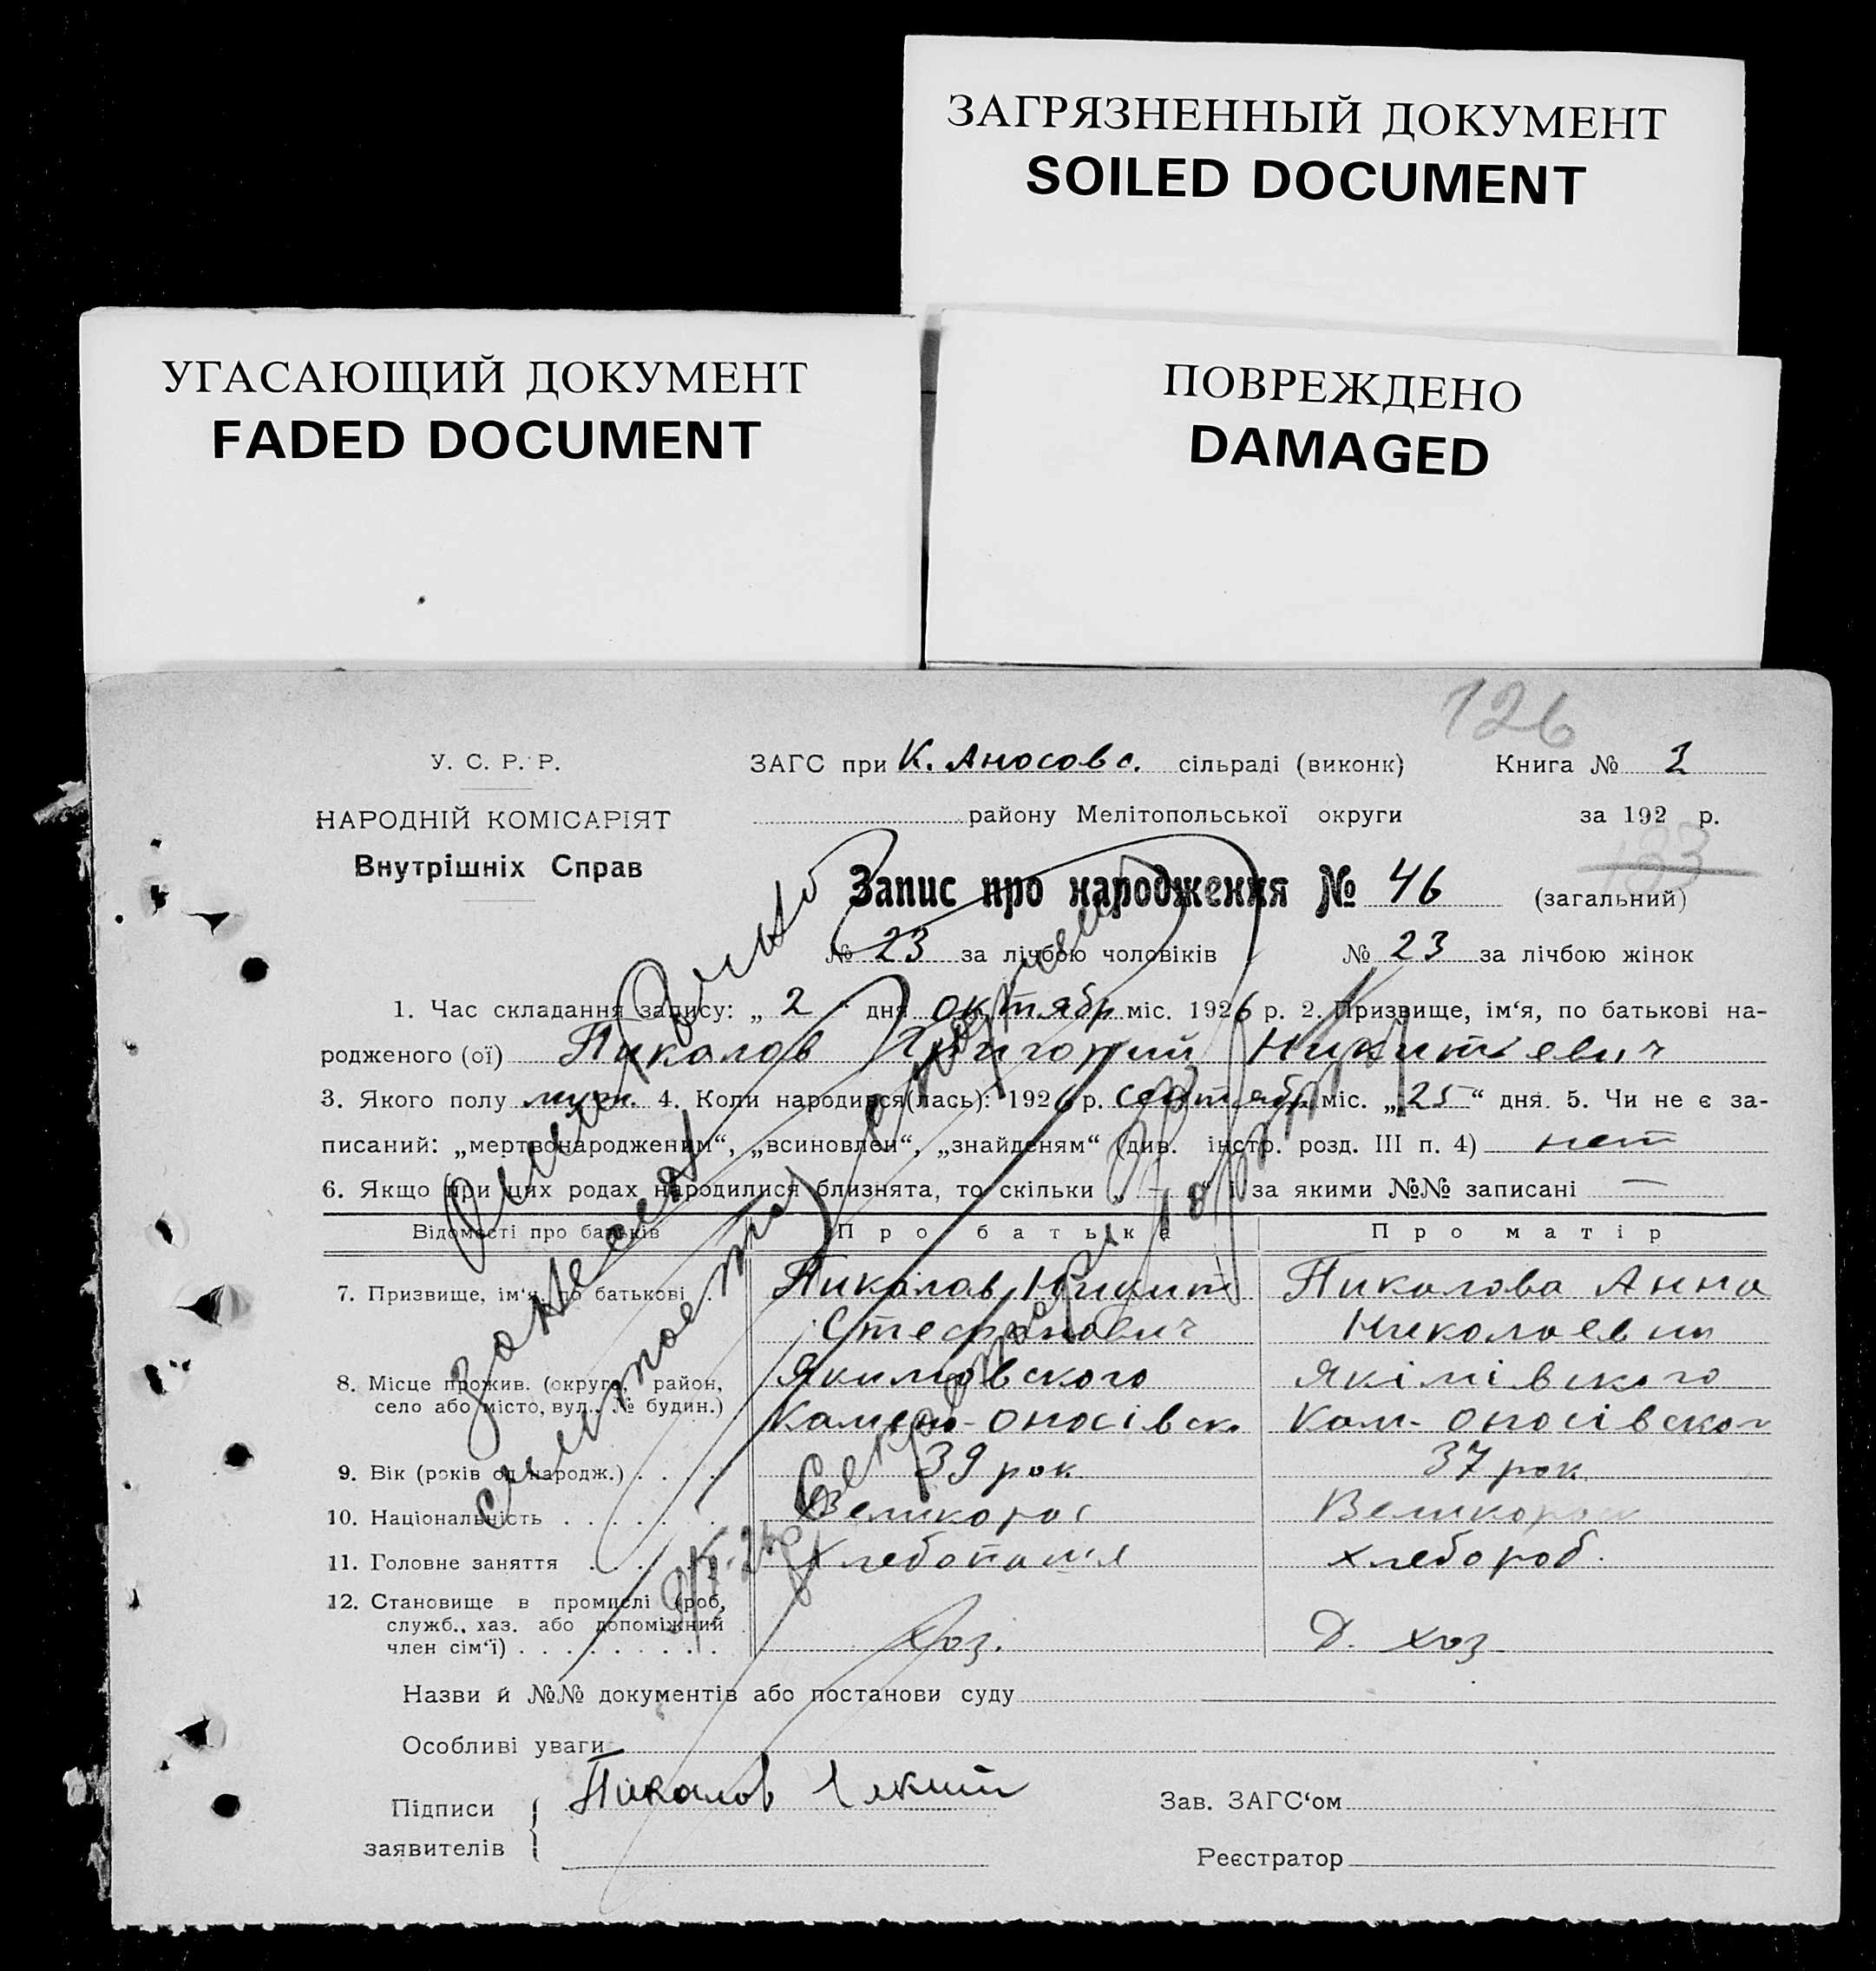 ЗАГРЯЗНЕННЫЙ ДОКУМЕНТ
SOILED DOCUMENT
УГАСАЮЩИЙ ДОКУМЕНТ
FADED DOCUMENT
ПОВРЕЖДЕНО
DAMAGED
126
У. С. Р. Р.
НАРОДНІЙ КОМІСАРІЯТ
Внутрішніх Справ
ЗАГС при К. Аносовс. сільраді (виконк) Книга № 2
району Мелітопольської округи за 192 р.
133
Запис про народження № 46 (загальний)
№ 23 за лічбою чоловіків № 23 за лічбою жінок
1. Час складання запису: „ 2 “ дня октябр міс. 1926 р. 2. Призвище, ім‘я, по батькові на-
родженого (ої) Пикалов Григорий Никитьевич
3. Якого полу муж. 4. Коли народився(лась): 1926 р. сентябр міс. „ 25 “ дня. 5. Чи не є за-
писаний: „мертвонародженим“, „всиновлен“, „знайденям“ (див. інстр. розд. III п. 4) нет
6. Якщо при цих родах народилися близнята, то скільки „ — “ за якими №№ записані —
Відомості про батьків Про батька Про матір
7. Призвище, ім‘я, по батькові . Пикалов Никит Пикалова Анна
Стефанович Николаевна
8. Місце прожив. (округа, район, Якимовского Якімівского
село або місто, вул., № будин.) Камено-Оносівск. Кам-Оносівског
9. Вік (років од народж.) . . . . 39 рок 37 рок
10. Національність . . . . . . . Великорос Великорос
11. Головне заняття . . . . . Хлебопаш хлебороб.
12. Становище в промислі (роб,
служб., хаз. або допоміжний
член сім‘ї) . . . . . . . . . Хоз. Д. хоз
Назви й №№ документів або постанови суду
Особливі уваги
Підписи
заявителів
Пикалов
Зав. ЗАГС‘ом
Реєстратор
занесен
Секретарь